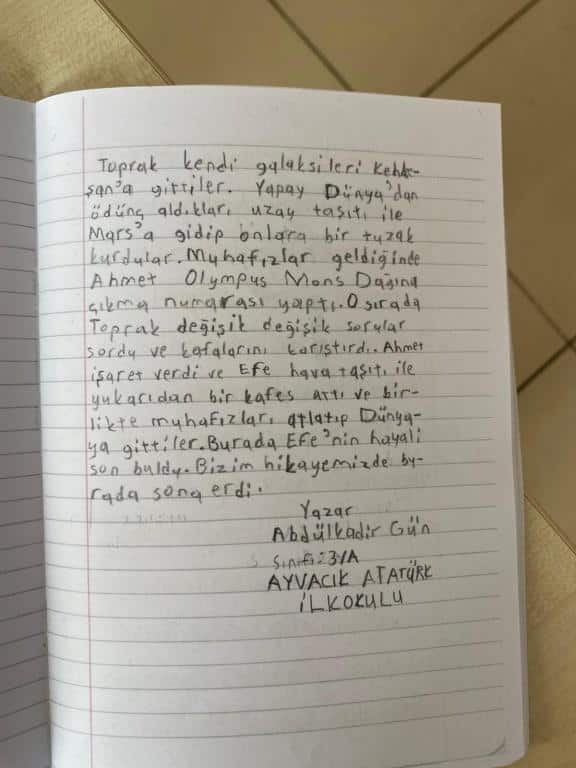 Toprak kendi galaksileri Kehk-
şan'a gittiler. Yapay Dünya'dan
ödünç aldıkları uzay taşıtı ile
Mars'a gidip onlara bir tuzak
kurdular. Muhafızlar geldiğinde
Ahmet Olympus Mons Dağına
çıkma numarası yaptı. O sırada
Toprak değişik değişik sorular
sordu ve kafalarını karıştırdı. Ahmet
işaret verdi ve Efe hava taşıtı ile
yukarıdan bir kafes attı ve bir-
likte muhafızları atlatıp Dünya-
ya gittiler. Burada Efe'nin hayali
son buldu. Bizim hikayemizde bu-
rada sona erdi.
Yazar
Abdülkadir Gün
Sınıfı: 3/A
AYVACIK ATATÜRK
İLKOKULU